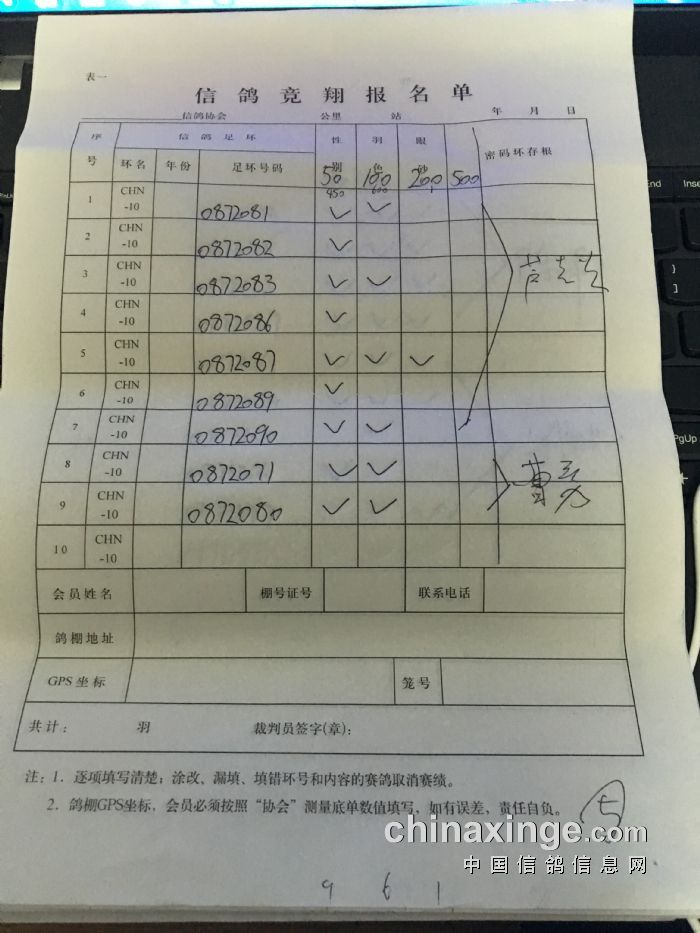 表一
信鸽竞翔报名单
信鸽协会 公里 站 年 月 日
序号 信鸽足环 性别 羽色 眼砂 密码环存根
环名 年份 足环号码 50 100 200 500
450 600
1 CHN-10 0872081 ✓ ✓
2 CHN-10 0872082 ✓
3 CHN-10 0872083 ✓ ✓
4 CHN-10 0872086 ✓
5 CHN-10 0872087 ✓ ✓ ✓
6 CHN-10 0872089 ✓
7 CHN-10 0872090 ✓ ✓
8 CHN-10 0872071 ✓ ✓
9 CHN-10 0872080 ✓ ✓
10 CHN-10
会员姓名 棚号证号 联系电话
鸽棚地址
GPS坐标 笼号
共计: 羽 裁判员签字(章);
注:1. 逐项填写清楚;涂改、漏填、填错环号和内容的赛鸽取消赛绩。
2. 鸽棚GPS坐标,会员必须按照“协会”测量底单数值填写,如有误差,责任自负。
5
chinaxinge.com
中国信鸽信息网
9 6 1